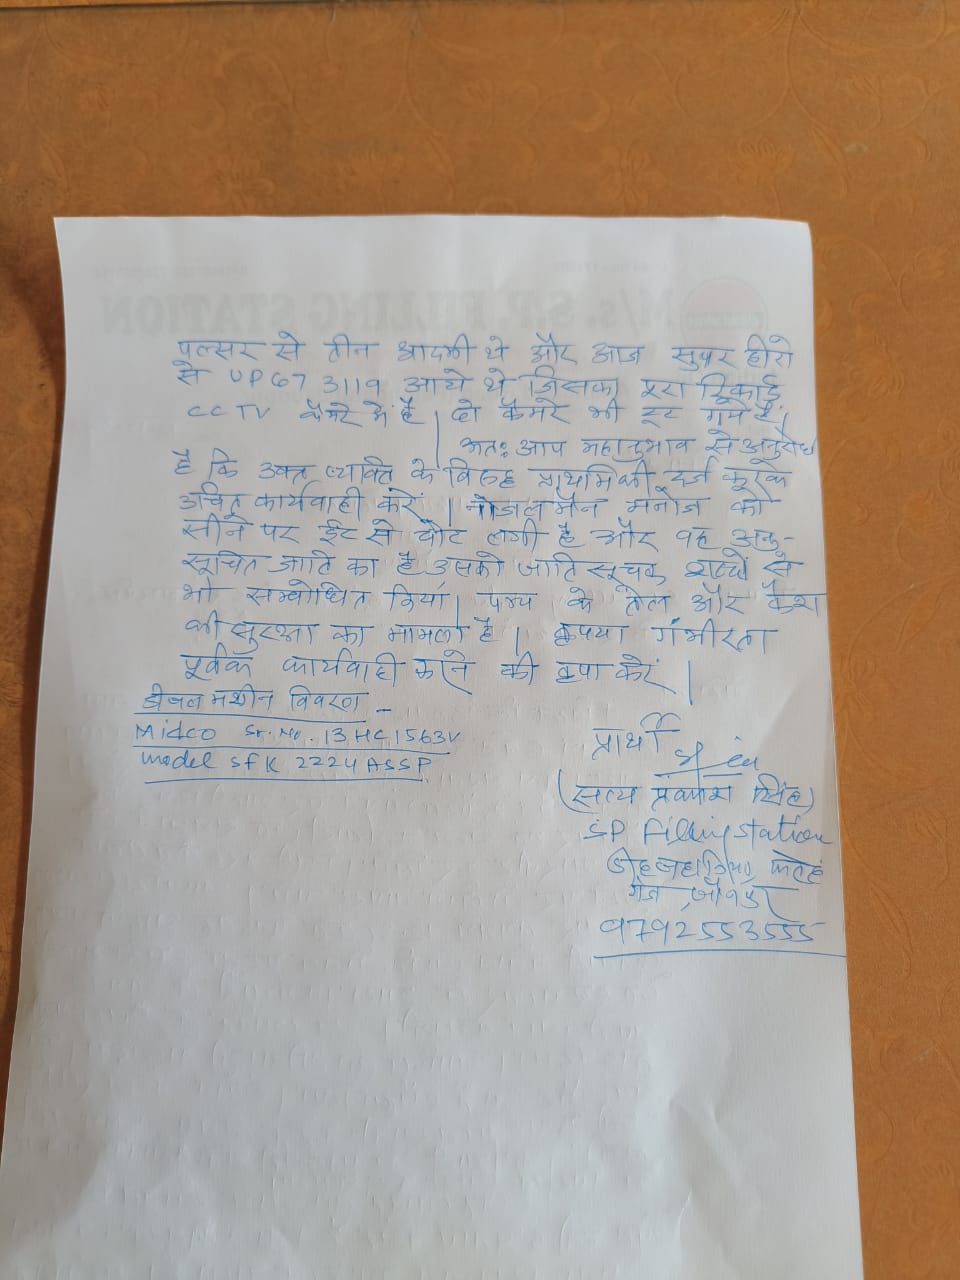 M/s. S.P. FILLING STATION
पल्सर से तीन आदमी थे और आज सुपर हीरो
से UP67 3119 आये थे जिसका पूरा रिकार्ड
CCTV कैमरे में है। दो कैमरे भी टूट गये हैं।
अतः आप महानुभाव से अनुरोध
है कि उक्त व्यक्ति के विरूद्ध प्राथमिकी दर्ज करके
उचित कार्यवाही करें। नोजल मैन मनोज को
सीने पर ईट से चोट लगी है और वह अनु-
सूचित जाति का है उसको जाति सूचक शब्दों से
भी सम्बोधित किया। पम्प के तेल और कैश
की सुरक्षा का मामला है। कृपया गंभीरता
पूर्वक कार्यवाही करने की कृपा करें।
डीजल मशीन विवरण -
Midco Sr. No. 13HC1563V
Model SFK 2224ASSP
प्रार्थी
(सत्य प्रकाश सिंह)
SP Filling Station
गंज, जौनपुर
9792553555